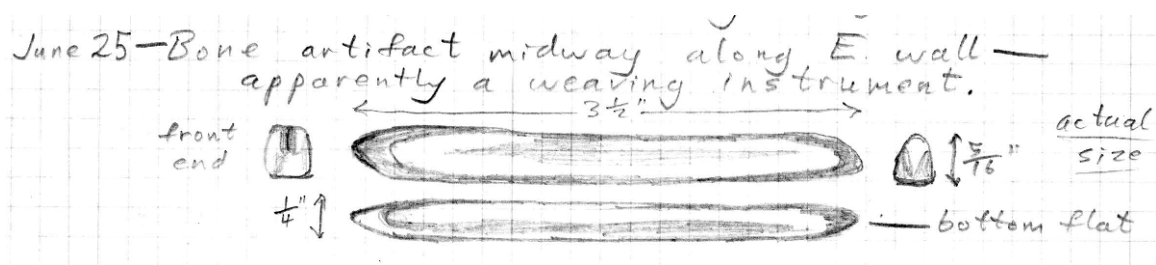 June 25—Bone artifact midway along E. wall—
apparently a weaving instrument.
3 1/2"
front
end
5/16"
actual
size
1/4"
— bottom flat